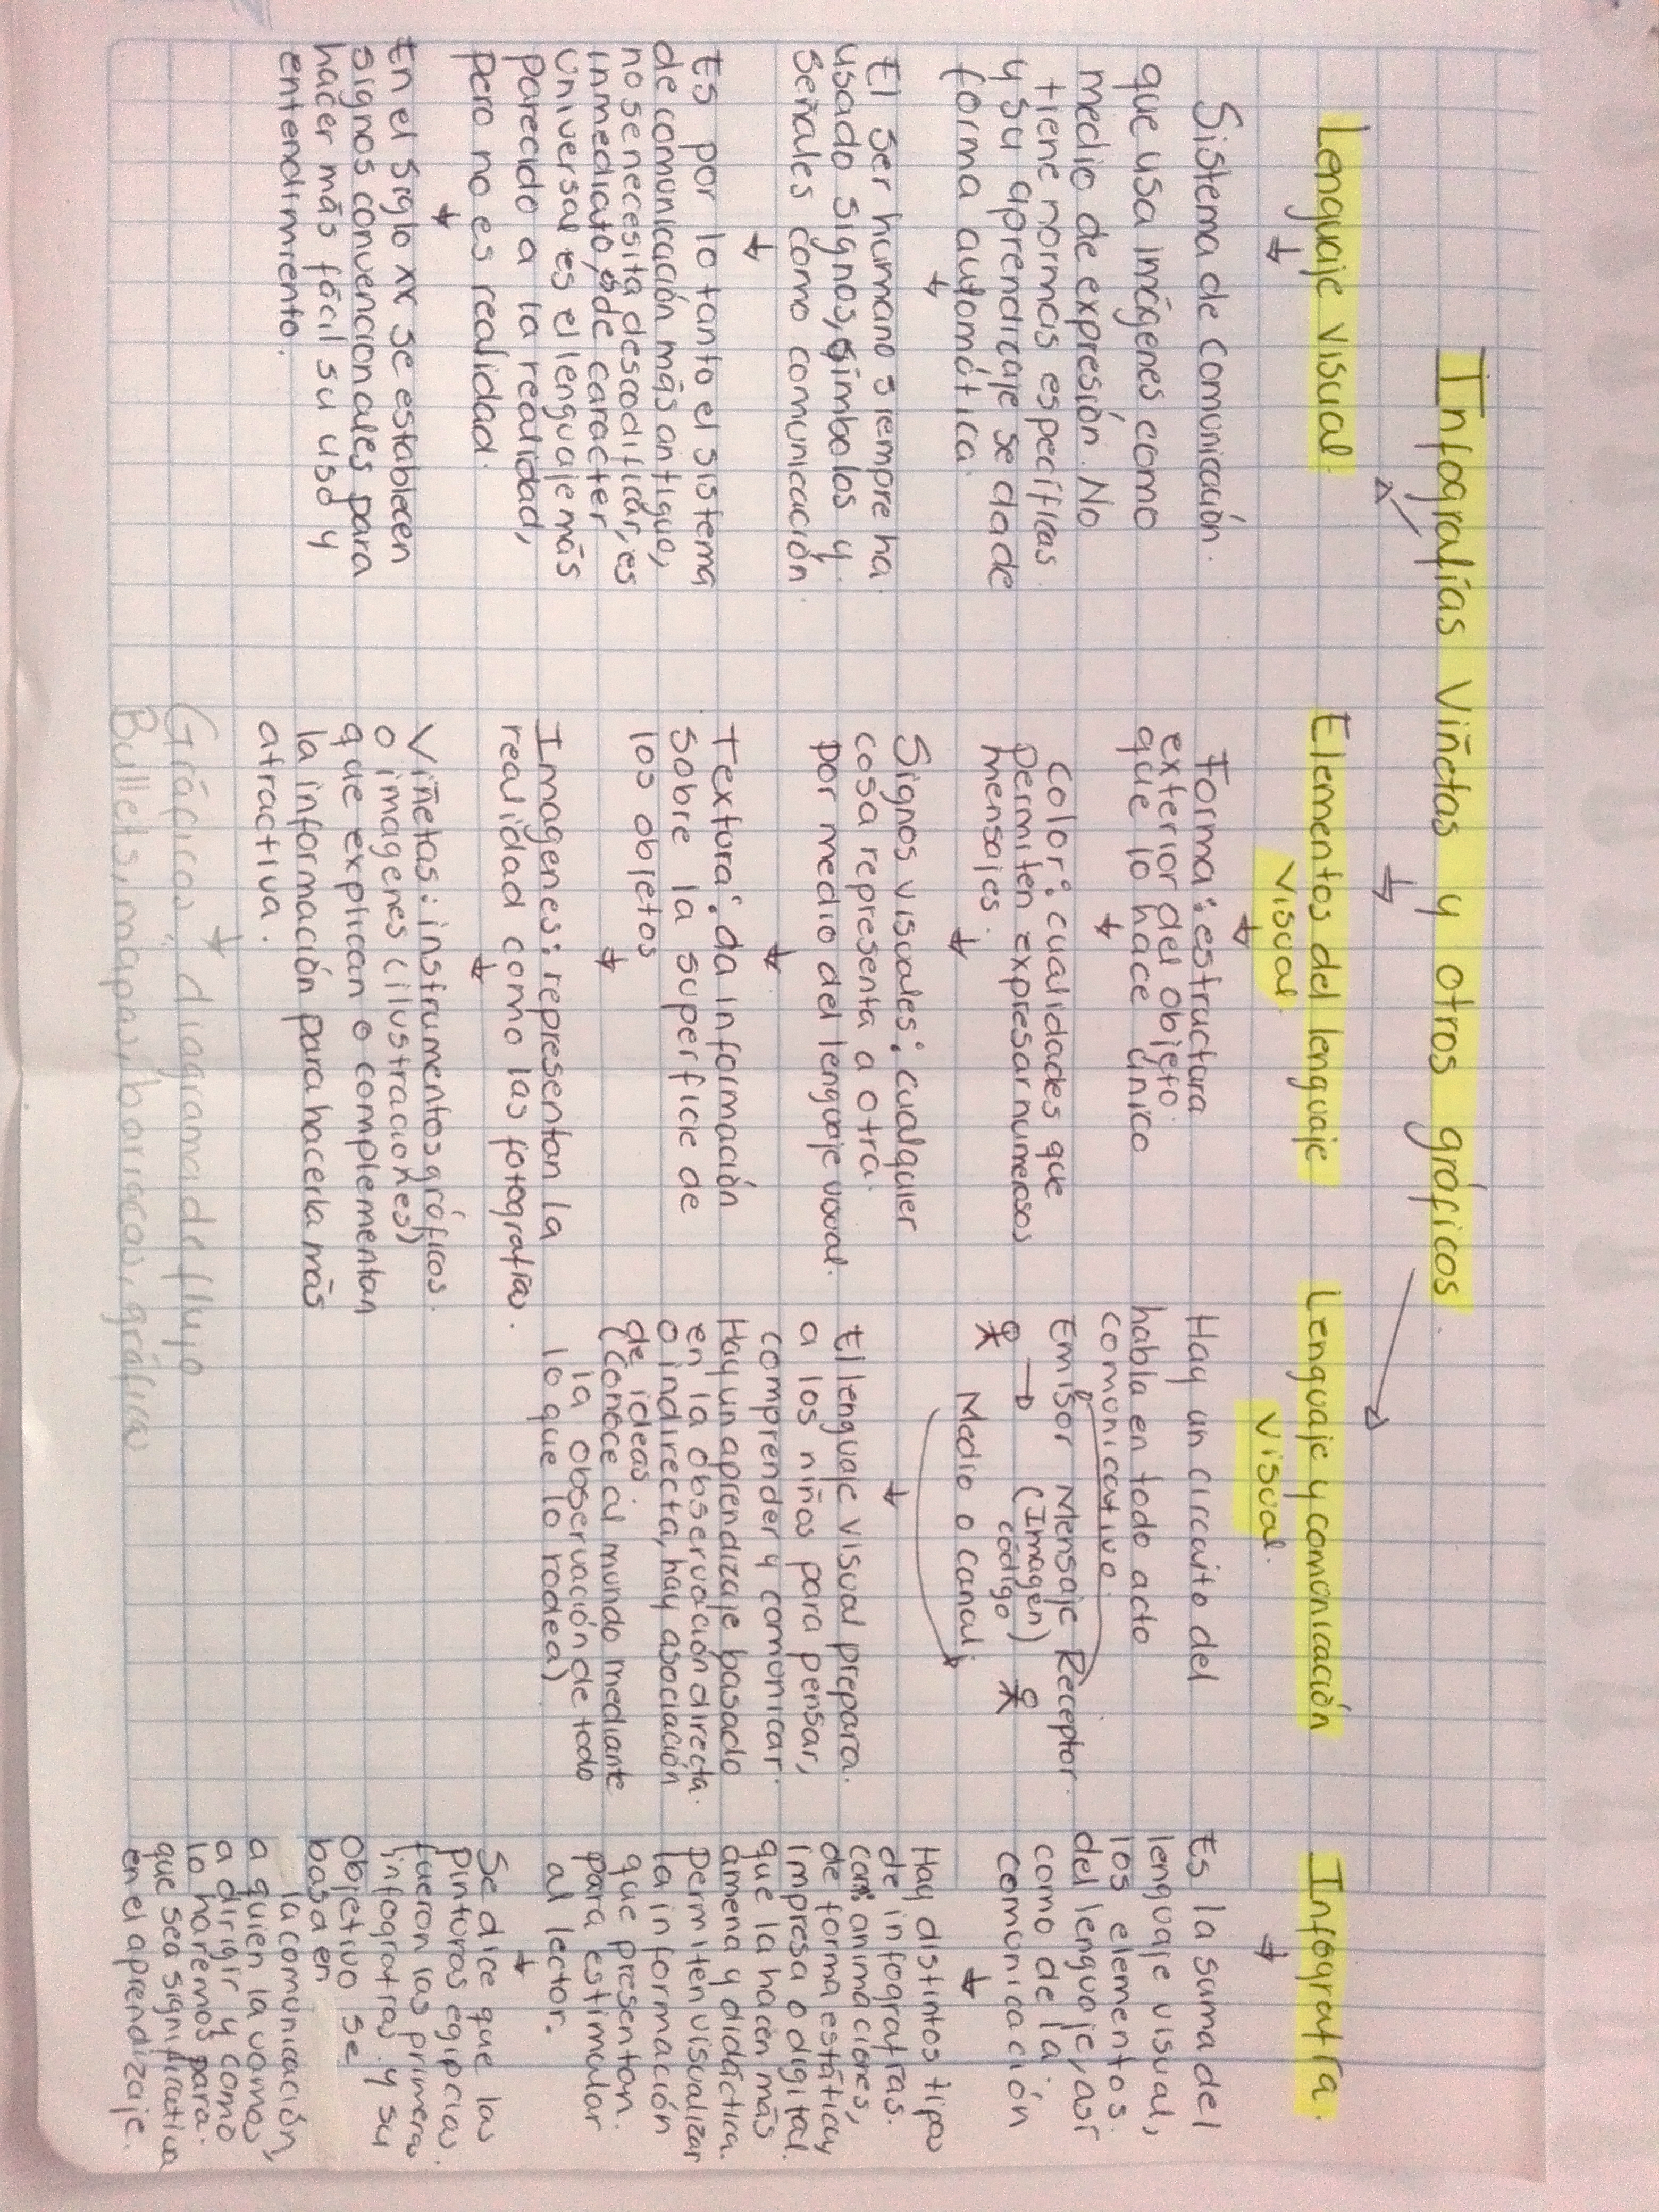 Infografías Viñetas y otros gráficos.
Lenguaje visual.
Sistema de comunicación.
que usa imágenes como
medio de expresión. No
tiene normas específicas.
y su aprendizaje se da de
forma automática.
El ser humano siempre ha
usado signos, símbolos y
señales como comunicación.
Es por lo tanto el sistema
de comunicación más antiguo,
no se necesita descodificar, es
inmediato, de caracter
Universal es el lenguaje más
parecido a la realidad,
pero no es realidad.
En el siglo XX se establecen
signos convencionales para
hacer más fácil su uso y
entendimiento.
Elementos del lenguaje
visual.
Forma: estructura
exterior del objeto.
que lo hace único
Color: cualidades que
permiten expresar numerosos
mensajes.
Signos visuales: cualquier
cosa representa a otra.
por medio del lenguaje visual.
Textura: da información
sobre la superficie de
los objetos
Imagenes: representan la
realidad como las fotografías.
Viñetas: instrumentos gráficos.
o imagenes (ilustraciones)
que explican o complementan
la información para hacerla más
atractiva.
Gráficos: diagrama de flujo
Bullets, mapas, bariscas, gráficas
Lenguaje y comunicación
visual.
Hay un circuito del
habla en todo acto
comunicativo.
Emisor Mensaje Receptor.
(Imagen)
código
Medio o canal
El lenguaje visual prepara.
a los niños para pensar,
comprender y comunicar.
Hay un aprendizaje basado
en la observación directa.
o indirecta, hay asociación
de ideas.
(conoce al mundo mediante
la observación de todo
lo que lo rodea)
Infografía.
Es la suma del
lenguaje visual,
los elementos.
del lenguaje, así
como de la
comunicación
Hay distintos tipos
de infografías.
con animaciones,
de forma estática y
impresa o digital.
que la hacen más
amena y didáctica.
Permiten visualizar
la información
que presentan.
para estimular
al lector.
Se dice que las
pinturas egipcias.
fueron las primeras
infografías. y su
objetivo se
basa en
la comunicación,
a quien la vamos
a dirigir y como
lo haremos para.
que sea significativa
en el aprendizaje.